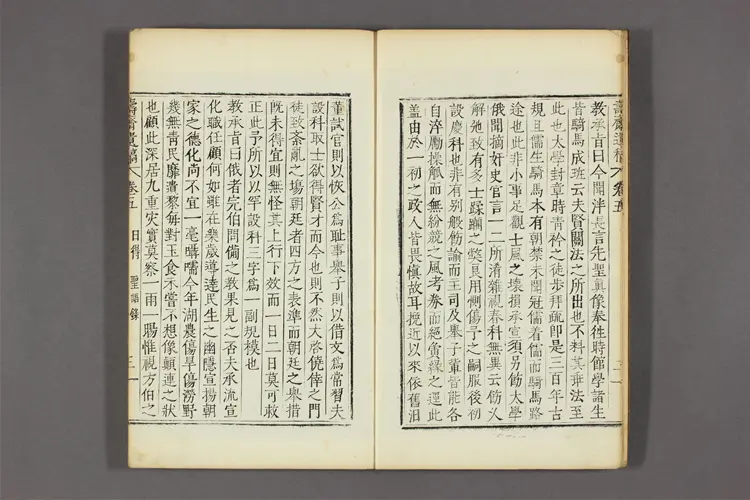 敎承旨曰今聞泮長言先聖眞像奉往時館學諸生
皆騎馬成班云夫賢關法之所出也不料其乖法至
此也太學封章時靑衿之徒步拜䟽卽是三百年古
規且儒生騎馬本有朝禁未聞冠儒着儒而騎馬路
途也此非小事足觀士風之壞損承宣須另飭太學
俄聞摘奸史官言一二所淆雜視春科無異云飭又
解弛致有多士蹂躪之獘異用惻傷予之嗣服後初
設慶科也非有別般飭諭而主司及擧子輩皆能各
自淬勵操觚而無紛競之風考券而絕夤緣之逕此
盖由於一初之政人皆畏愼故耳挽近以來依舊汨
董試官則以恢公爲耻事擧子則以借文爲常習夫
設科取士欲得賢才而今也則不然大啓僥倖之門
徒致紊亂之塲朝廷者四方之表準而朝廷之擧措
旣未得宜則無怪其上行下效而一日二日莫可救
正此予所以以罕設科三字爲一副規模也
敎承旨曰俄者完伯問備之敎果見之否夫承流宣
化職任顧何如雖在樂歲導達民生之幽隱宣揚朝
家之德化尚不宜一毫疇𠹌今年湖農傷旱傷澇野
幾無靑民靡遺黎每對玉食不嘗不想像顚連之狀
也顧此深居九重灾實莫察一雨一暘惟視方伯之
壽齋遺稿 卷五 日得聖語錄 三一